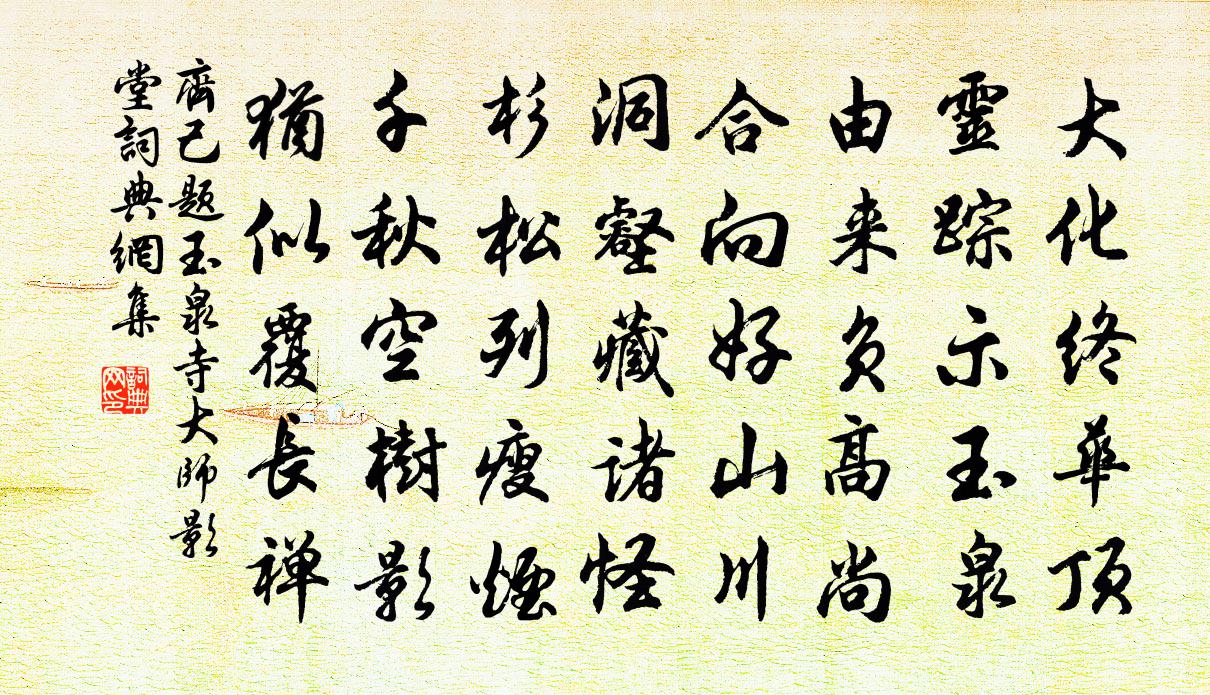 大化终华顶
靈踪示玉泉
由来负高尚
合向好山川
洞壑藏诸怪
杉松列瘦煙
千秋空樹影
犹似覆长禅
齊己题玉泉寺大师影
堂詞典網集
詞典网印